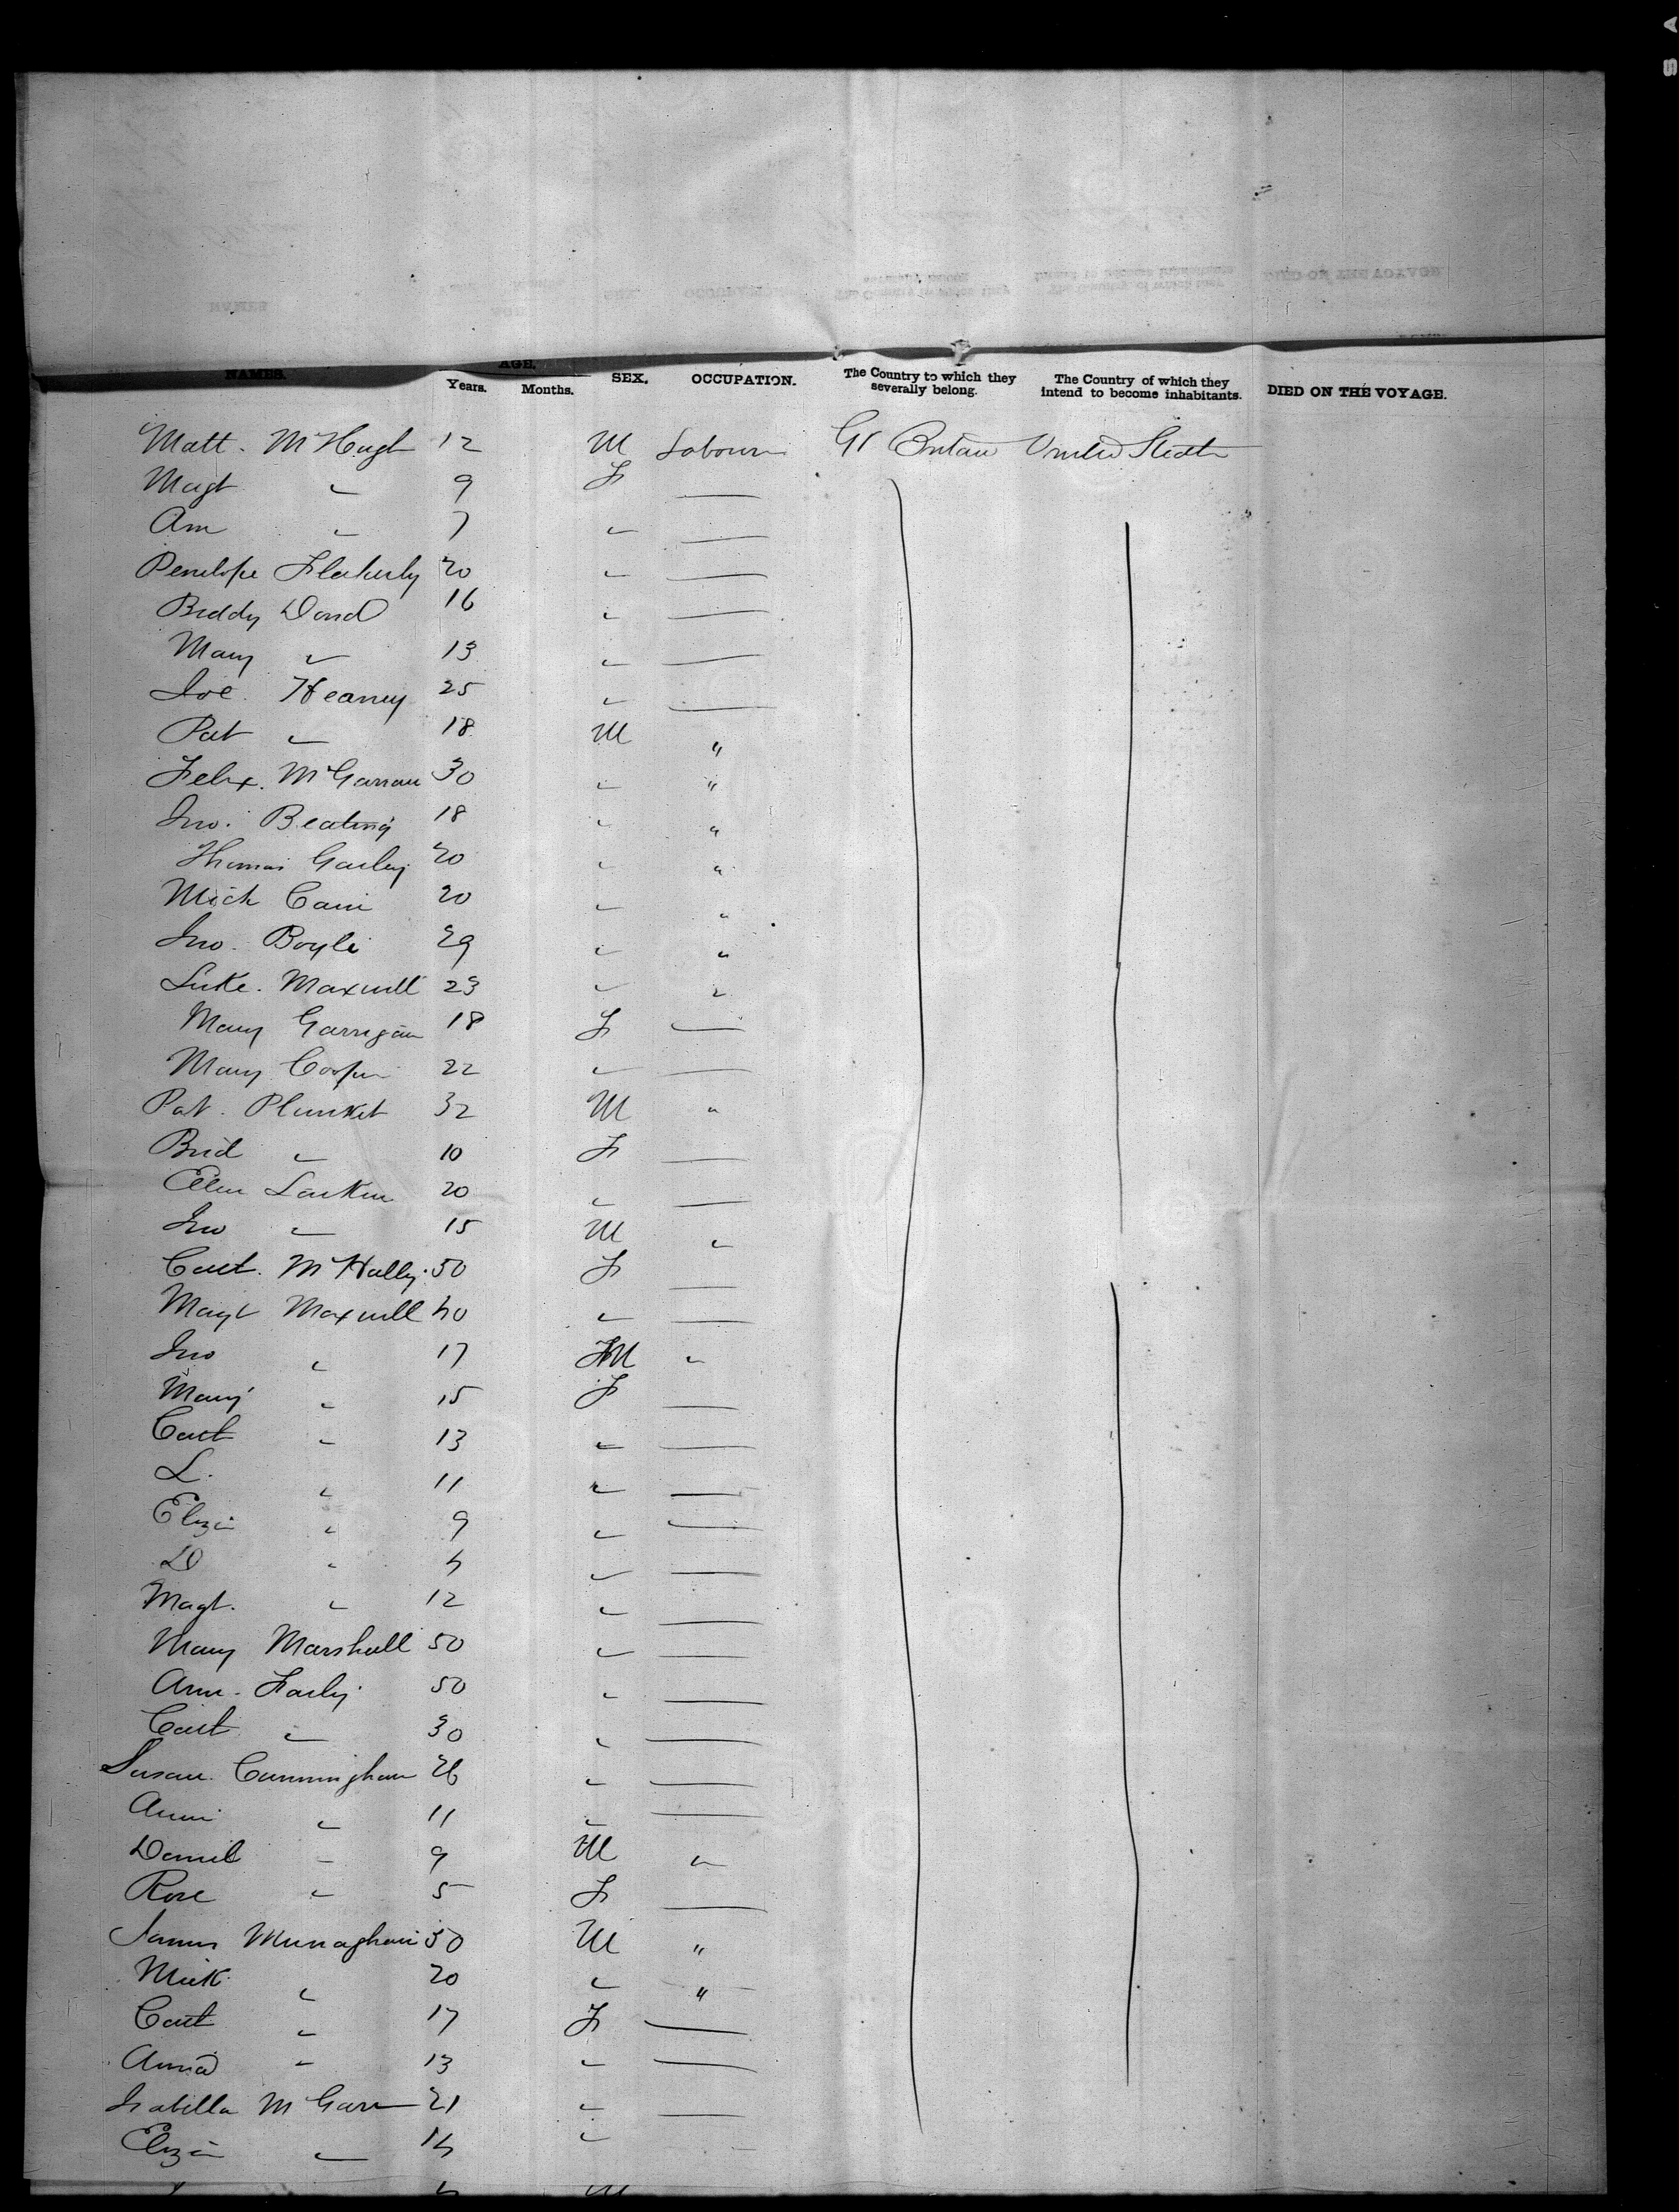 NAMES. AGE. Years. Months. SEX. OCCUPATION. The Country to which they severally belong. The Country of which they intend to become inhabitants. DIED ON THE VOYAGE.
Matt. McHugh 12 M Labourer Gt Britain United States
Magt " 9 F —
Ann " 7 " —
Penelope Flaherty 20 " —
Biddy 16 " —
Mary " 13 " —
Heaney 25 " —
Pat " 18 M "
Felix. McGarran 30 " "
Jno. Beating 18 " "
Thomas 20 " "
Mich Cain 20 " "
Jno. Boyle 29 " "
Luke. Maxwell 23 " "
Mary Garrigan 18 F —
Mary Cooper 22 " —
Pat. Plunket 32 M "
Brid " 10 F —
Ellen Larkin 20 " —
Jno " 15 M "
Cath. 50 F —
Magt Maxwell 40 " —
Jno " 17 M "
Mary " 15 F —
Cath " 13 " —
L. " 11 " —
Eliza " 9 " —
D " 4 " —
Magt. " 12 " —
Mary Marshall 50 " —
Ann. Farley 50 " —
Cath " 30 " —
Susan. Cunningham 26 " —
Annie " 11 " —
Daniel " 9 M "
Rose " 5 F —
James Munaghan 50 M "
Mick. " 20 " "
Cath " 17 F —
Anna " 13 " —
Isabella McGarr 21 " —
Eliza " 14 " —